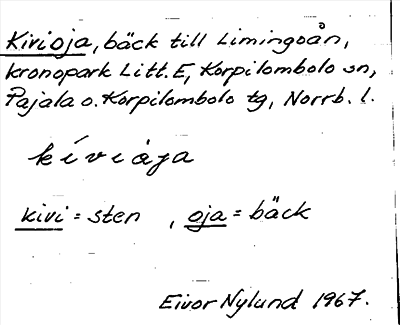 Kirioja, bäck till Limingoån,
kronopark Litt. E, Korpilombolo sn,
Pajala o. Korpilombolo tg, Norrb. l.
kíviåja
kivi = sten , oja = bäck
Eivor Nylund 1967.